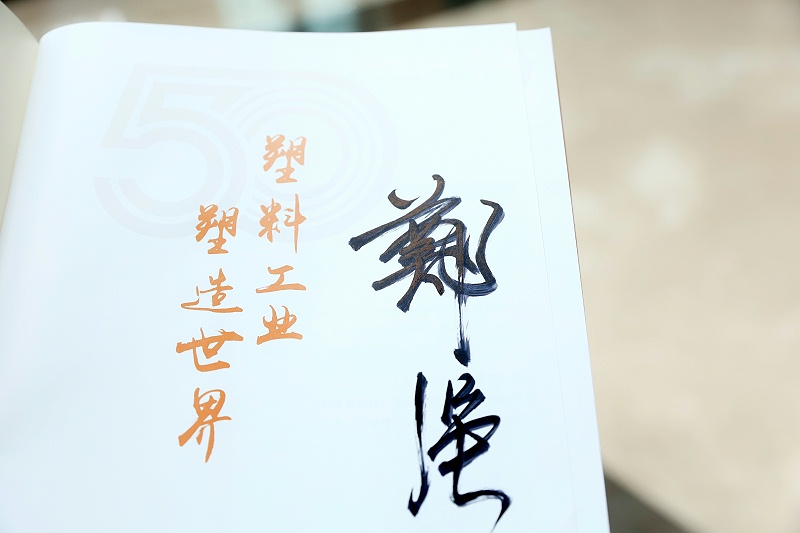 50
塑料工业
塑造世界
鄭强